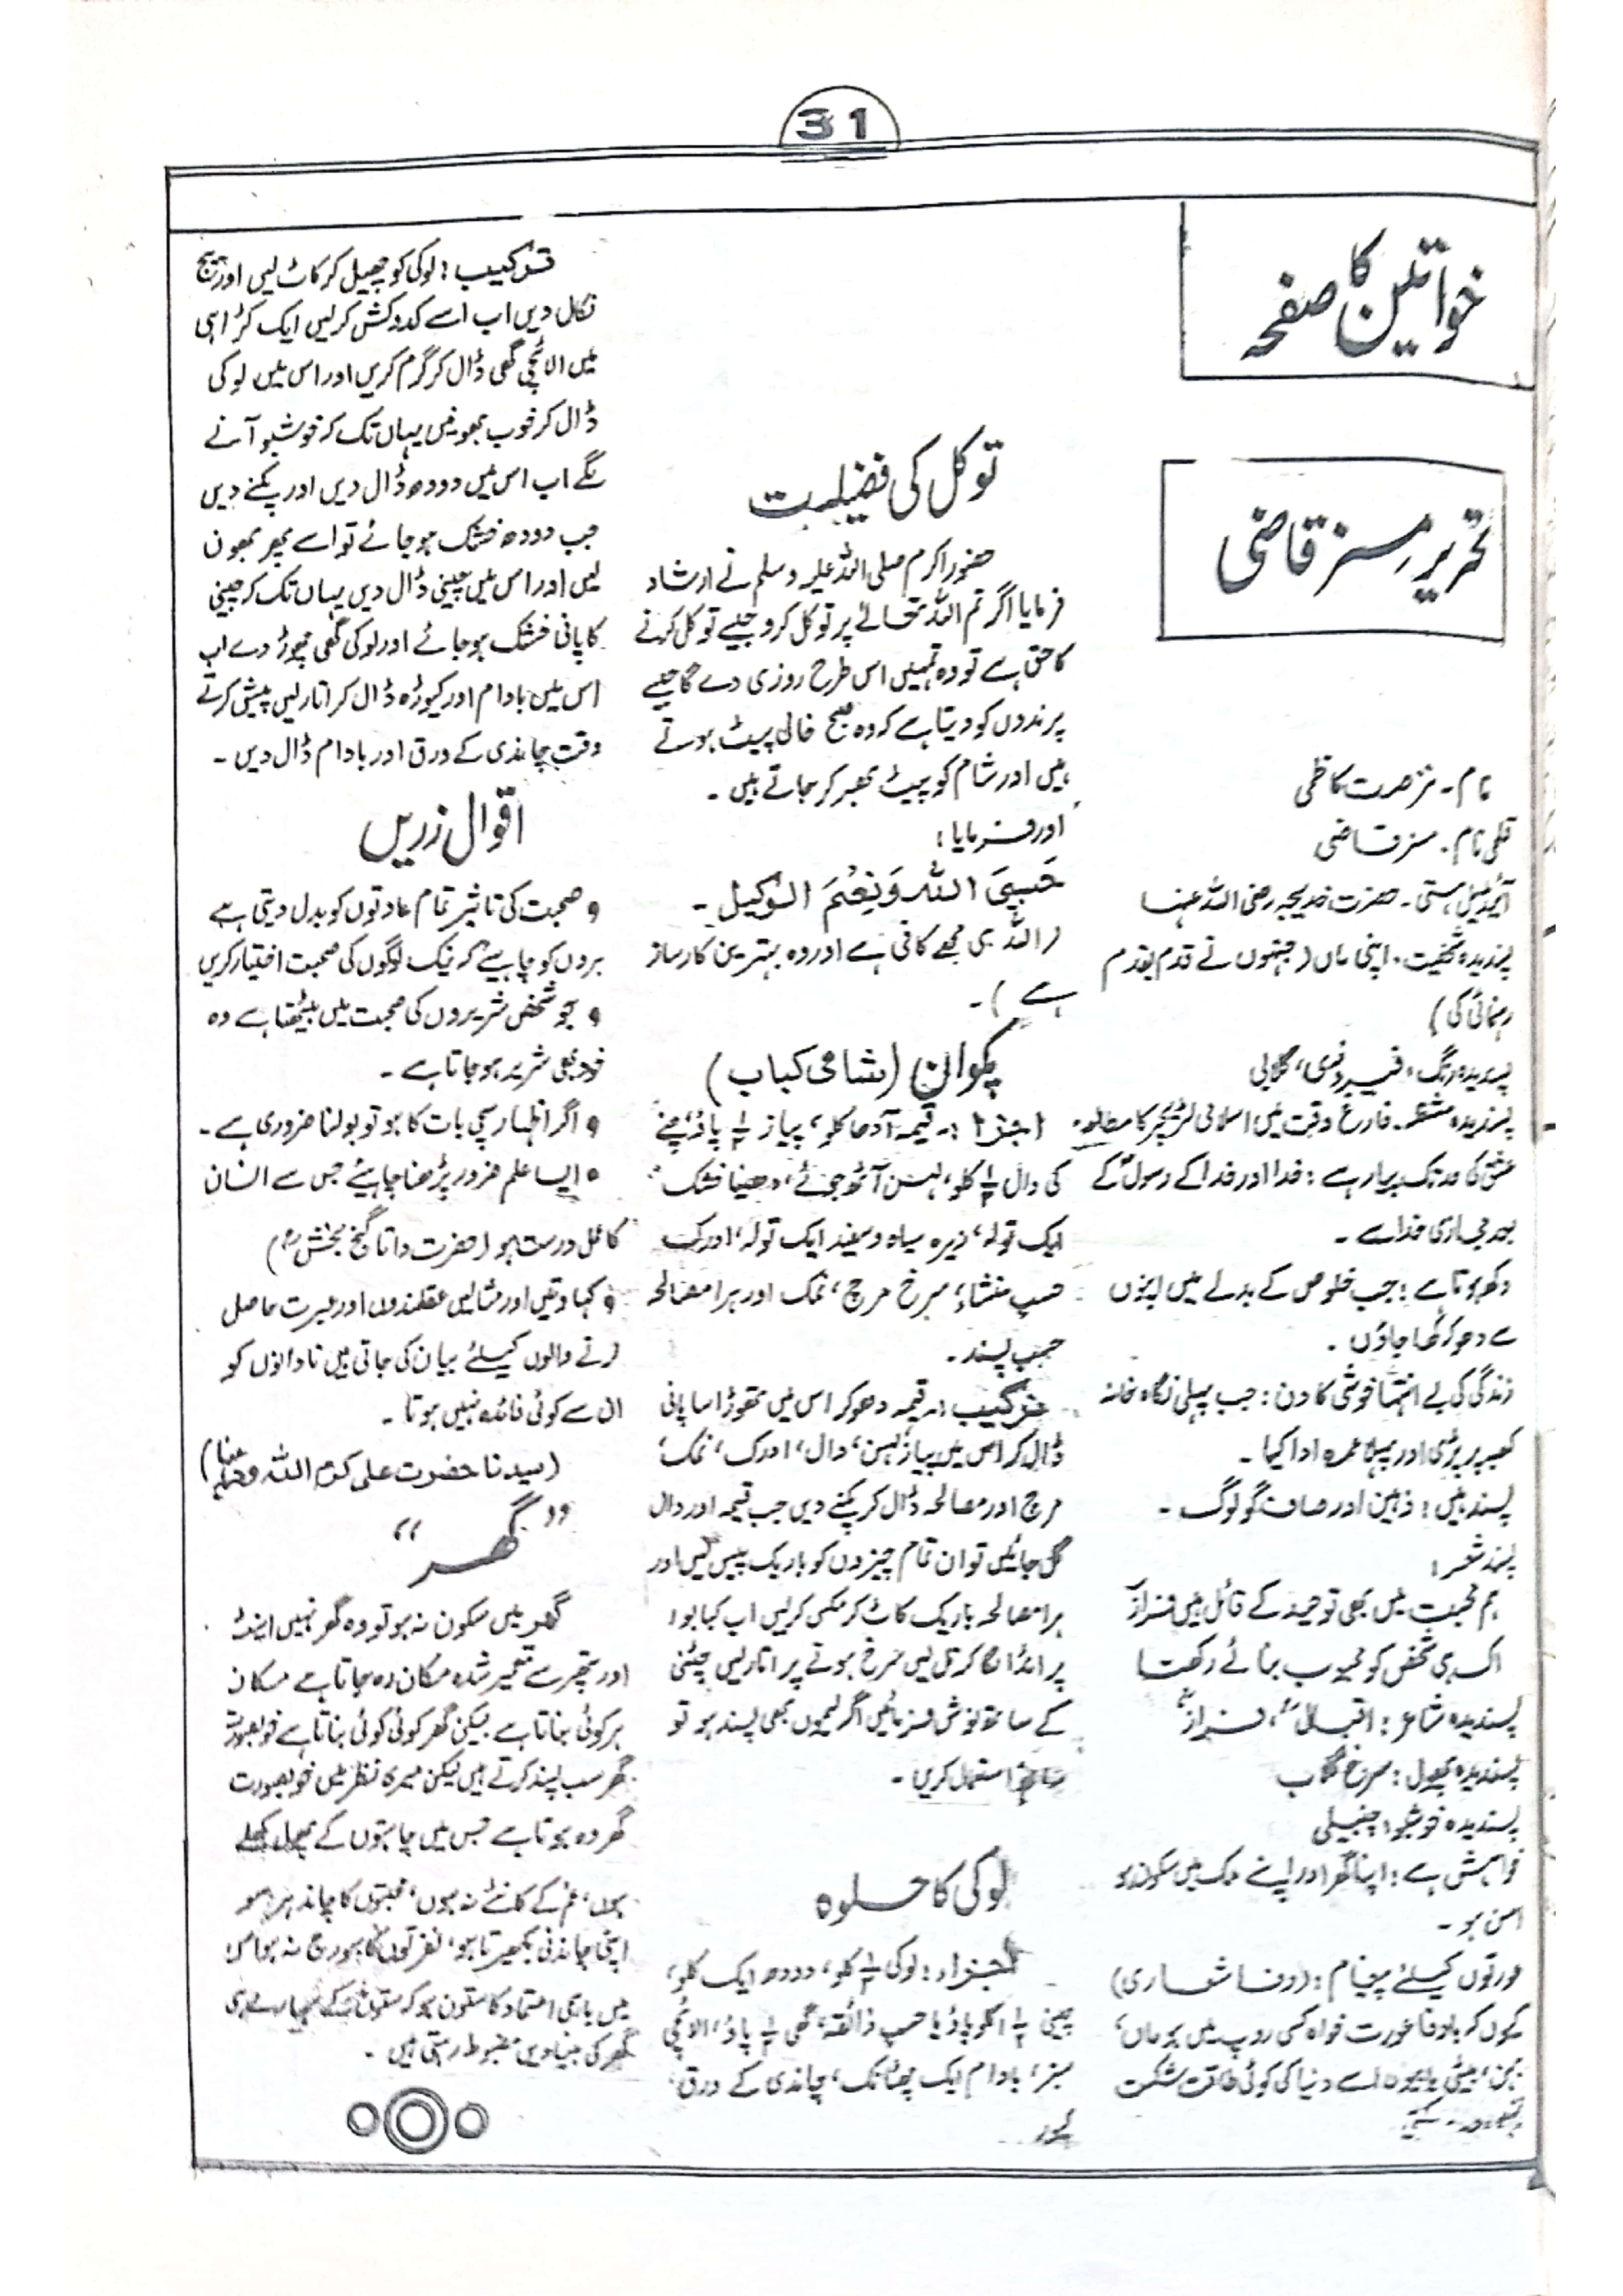 31
خواتین کا صفحہ
تحریر مسز قاضی
نام۔ نزہت کاظمی
قلمی نام۔ مسز قاضی
آئیڈیل ہستی۔ حضرت خدیجہ رضی اللہ عنہا
پسندیدہ شخصیت۔ اپنی ماں (جنہوں نے قدم بقدم
رہنمائی کی)
پسندیدہ رنگ، فیروزی، گلابی
پسندیدہ مشغلہ۔ فارغ وقت میں اسلامی لٹریچر کا مطالعہ
عشق کی حد تک پیار ہے: خدا اور خدا کے رسولؐ کے
بعد مجازی خدا سے۔
دکھ ہوتا ہے: جب خلوص کے بدلے میں اپنوں
سے دھوکہ کھا جاؤں۔
زندگی کی بے انتہا خوشی کا دن: جب پہلی نگاہ خانہ
کعبہ پر پڑی اور پہلا عمرہ ادا کیا۔
پسند ہیں: ذہین اور صاف گو لوگ۔
پسند شعر:
ہم محبت میں بھی توحید کے قائل ہیں فرازؔ
اک ہی شخص کو محبوب بنائے رکھنا
پسندیدہ شاعر: اقبالؒ، فرازؔ
پسندیدہ پھول: سرخ گلاب
پسندیدہ خوشبو: چنبیلی
خواہش ہے: اپنا گھر اور اپنے ملک میں سکون ہو
امن ہو۔
عورتوں کیلئے پیغام: (وفا شعاری)
کیوں کہ باوفا عورت خواہ کسی روپ میں ہو ماں،
بہن، بیٹی یا بیوی اسے دنیا کی کوئی طاقت شکست
توکل کی فضیلت
حضور اکرم صلی اللہ علیہ وسلم نے ارشاد
فرمایا اگر تم اللہ تعالےٰ پر توکل کرو جیسے توکل کرنے
کا حق ہے تو وہ تمہیں اس طرح روزی دے گا جیسے
پرندوں کو دیتا ہے کہ وہ صبح خالی پیٹ ہوتے
ہیں اور شام کو پیٹ بھر کر جاتے ہیں۔
اور فرمایا:
حَسبِیَ اللہ وَنِعمَ الوَکیل۔
(اللہ ہی مجھے کافی ہے اور وہ بہترین کارساز
ہے)۔
پکوان (شامی کباب)
اجزا:۔ قیمہ آدھا کلو، پیاز ½ پاؤ، چنے
کی دال ½ کلو، لہسن آٹھ جوئے، دھنیا خشک
ایک تولہ، زیرہ سیاہ و سفید ایک تولہ، ادرک
حسب منشاء، سرخ مرچ، نمک اور ہرا مصالحہ
حسب پسند۔
ترکیب:۔ قیمہ دھو کر اس میں تھوڑا سا پانی
ڈال کر اس میں پیاز، لہسن، دال، ادرک، نمک،
مرچ اور مصالحہ ڈال کر پکنے دیں جب قیمہ اور دال
گل جائیں تو ان تمام چیزوں کو باریک پیس لیں اور
ہرا مصالحہ باریک کاٹ کر مکس کر لیں اب کبابوں
پر انڈا لگا کر تل لیں سرخ ہونے پر اتار لیں چٹنی
کے ساتھ نوش فرمائیں اگر لیموں بھی پسند ہو تو
ساتھ استعمال کریں۔
لوکی کا حلوہ
اجزاء: لوکی ½ کلو، دودھ ایک کلو،
چینی ½ کلو پاؤ یا حسب ذائقہ، گھی ½ پاؤ، الائچی
سبز، بادام ایک چھٹانک، چاندی کے ورق،
ترکیب: لوکی کو چھیل کر کاٹ لیں اور بیج
نکال دیں اب اسے کدوکش کر لیں ایک کڑاہی
میں الائچی گھی ڈال کر گرم کریں اور اس میں لوکی
ڈال کر خوب بھونیں یہاں تک کہ خوشبو آنے
لگے اب اس میں دودھ ڈال دیں اور پکنے دیں
جب دودھ خشک ہو جائے تو اسے پھر بھون
لیں اور اس میں چینی ڈال دیں یہاں تک کہ چینی
کا پانی خشک ہو جائے اور لوکی گھی چھوڑ دے اب
اس میں بادام اور کیوڑہ ڈال کر اتار لیں پیش کرتے
وقت چاندی کے ورق اور بادام ڈال دیں۔
اقوال زریں
• صحبت کی تاثیر تمام عادتوں کو بدل دیتی ہے
بروں کو چاہیے کہ نیک لوگوں کی صحبت اختیار کریں
• جو شخص شریروں کی صحبت میں بیٹھتا ہے وہ
خود بھی شریر ہو جاتا ہے۔
• اگر اظہار سچی بات کا ہو تو بولنا ضروری ہے۔
• ایسا علم ضرور پڑھنا چاہیئے جس سے انسان
کا عمل درست ہو (حضرت داتا گنج بخشؒ)
• کہاوتیں اور مثالیں عقلمندوں اور عبرت حاصل
کرنے والوں کیلئے بیان کی جاتی ہیں نادانوں کو
ان سے کوئی فائدہ نہیں ہوتا۔
(سیدنا حضرت علی کرم اللہ وجہہ)
”گھر“
گھر میں سکون نہ ہو تو وہ گھر نہیں اینٹ
اور پتھر سے تعمیر شدہ مکان رہ جاتا ہے مکان
ہر کوئی بناتا ہے لیکن گھر کوئی کوئی بناتا ہے خوبصورت
گھر سب پسند کرتے ہیں لیکن میری نظر میں خوبصورت
گھر وہ ہوتا ہے جس میں چاہتوں کے پھول کھلے
ہوں، غم کے کانٹے نہ ہوں، محبتوں کا چاند ہر سو
اپنی چاندنی بکھیرتا ہو، نفرتوں کا سورج نہ ہو اس
میں باہمی اعتماد کا ستون ہو کہ ستون کے سہارے ہی
گھر کی بنیادیں مضبوط رہتی ہیں۔